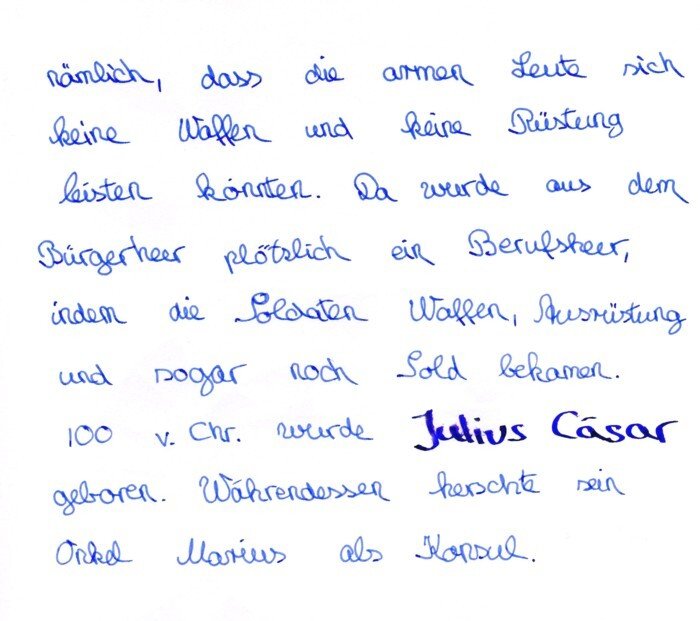 nämlich, dass die armen Leute sich
keine Waffen und keine Rüstung
leisten könnten. Da wurde aus dem
Bürgerheer plötzlich ein Berufsheer,
indem die Soldaten Waffen, Ausrüstung
und sogar noch Sold bekamen.
100 v. Chr. wurde Julius Cäsar
geboren. Währendessen herschte sein
Onkel Marius als Konsul.